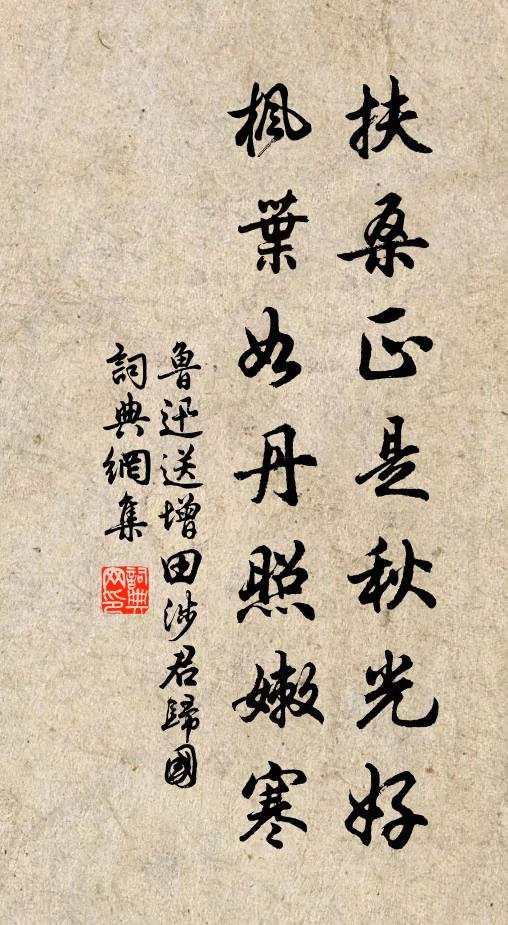 扶桑正是秋光好
楓葉如丹照嫩寒
魯迅送增田涉君歸國
詞典網集
詞典網印